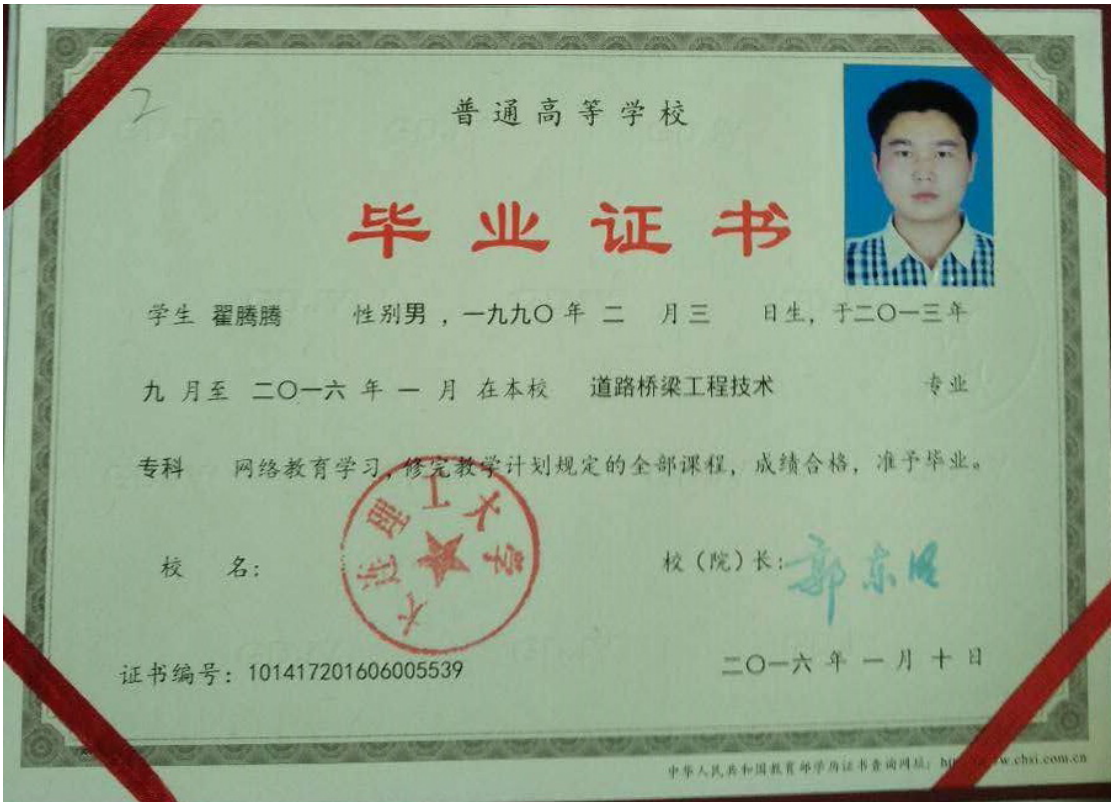 2
普通高等学校
毕业证书
学生 翟腾腾 性别男，一九九〇年 二 月三 日生，于二〇一三年
九 月至 二〇一六 年 一 月 在本校 道路桥梁工程技术 专业
专科 网络教育学习，修完教学计划规定的全部课程，成绩合格，准予毕业。
大连理工大学
校 名： 校（院）长：郭东明
证书编号：101417201606005539 二〇一六 年 一 月 十 日
中华人民共和国教育部学历证书查询网址：http://www.chsi.com.cn